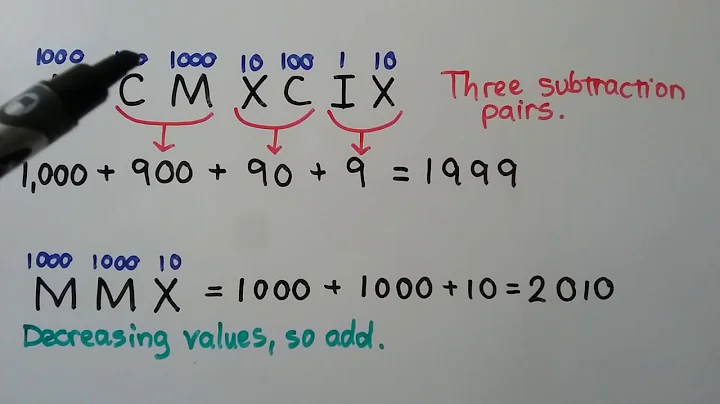 1000 1000 10 100 1 10
C M X C I X
Three subtraction
pairs.
1,000 + 900 + 90 + 9 = 1999
1000 1000 10
M M X = 1000 + 1000 + 10 = 2010
Decreasing values, so add.